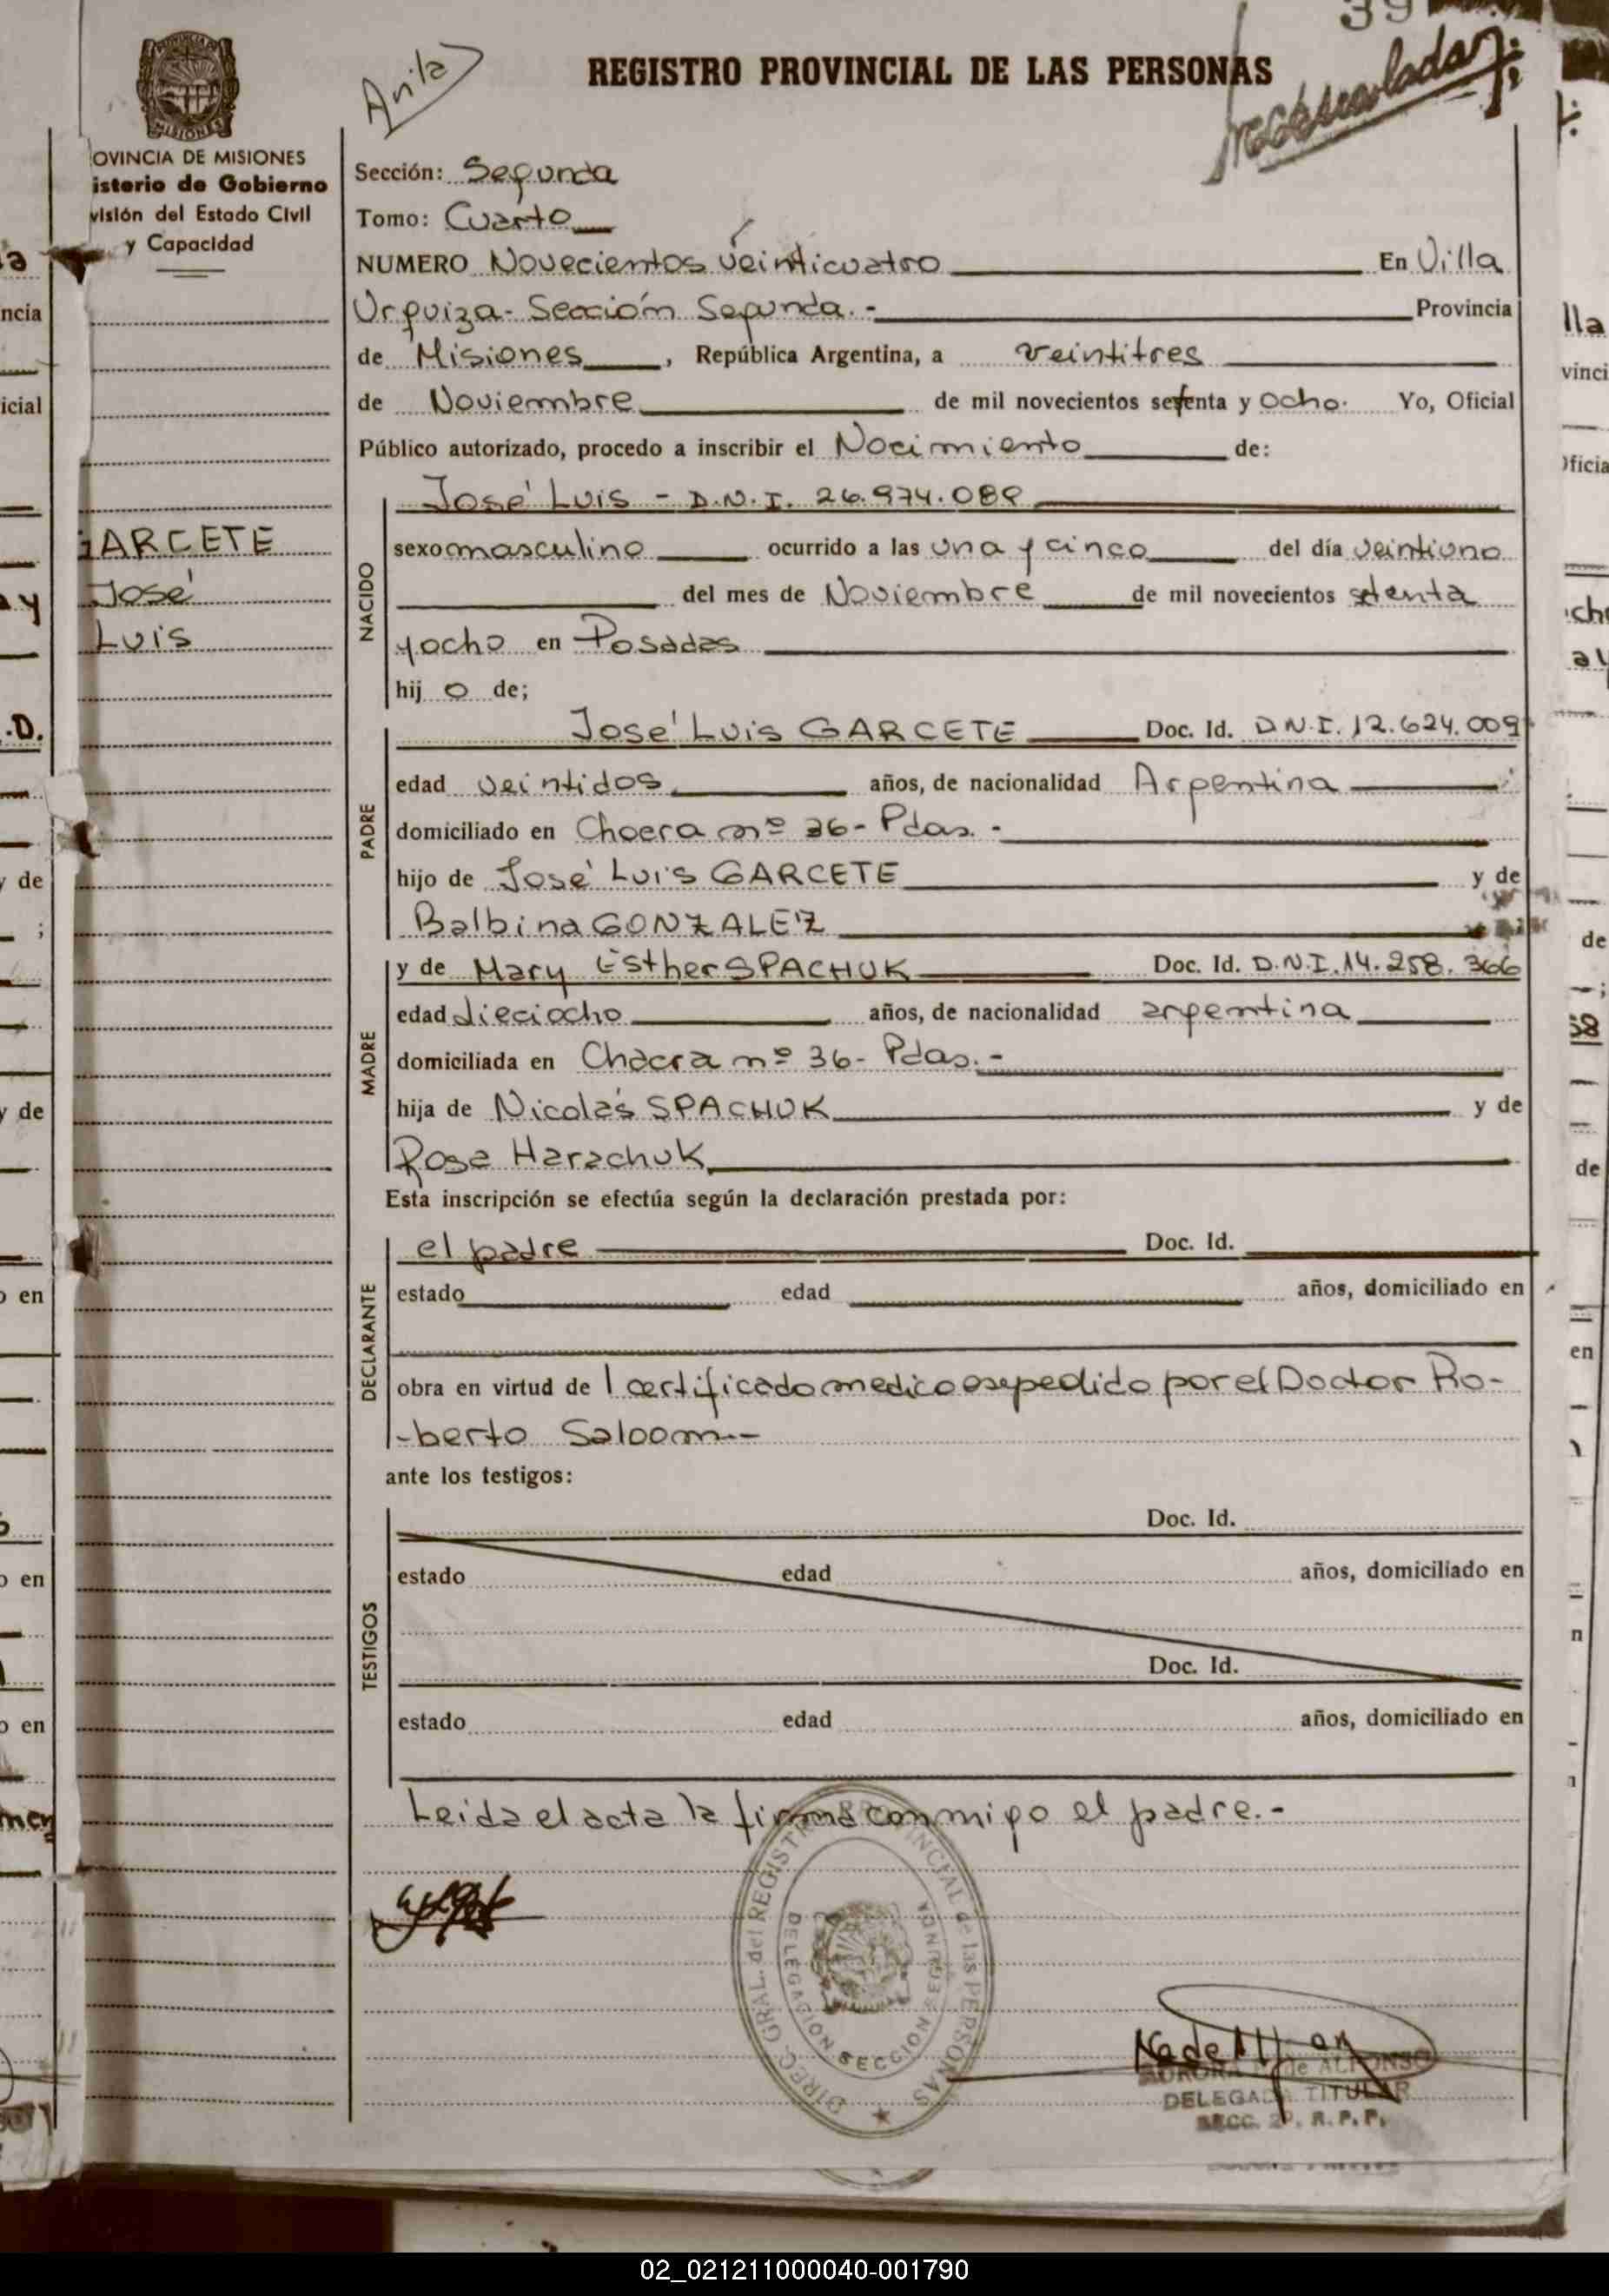 39
REGISTRO PROVINCIAL DE LAS PERSONAS
PROVINCIA DE
MISIONES
OVINCIA DE MISIONES
isterio de Gobierno
visión del Estado Civil
y Capacidad
Sección: Segunda
Tomo: Cuarto
NUMERO Novecientos veinticuatro En Villa
Urquiza - Sección Segunda. - Provincia
de Misiones, República Argentina, a veintitres
de Noviembre de mil novecientos setenta y ocho. Yo, Oficial
Público autorizado, procedo a inscribir el Nacimiento de:
José Luis - D.N.I. 26.974.089
GARCETE
José
Luis
NACIDO
sexo masculino ocurrido a las una y cinco del día veintiuno
del mes de Noviembre de mil novecientos setenta
y ocho en Posadas
hij o de;
PADRE
José Luis GARCETE Doc. Id. D.N.I. 12.624.009
edad veintidos años, de nacionalidad Argentina
domiciliado en Chacra nº 36 - Pdas. -
hijo de José Luis GARCETE y de
Balbina GONZALEZ
MADRE
y de Mary Esther SPACHUK Doc. Id. D.N.I. 14.258.366
edad dieciocho años, de nacionalidad argentina
domiciliada en Chacra nº 36 - Pdas. -
hija de Nicolás SPACHUK y de
Rosa Harachuk
Esta inscripción se efectúa según la declaración prestada por:
DECLARANTE
el padre Doc. Id.
estado edad años, domiciliado en
obra en virtud de 1 certificado medico expedido por el Doctor Ro-
-berto Saloom.-
ante los testigos:
TESTIGOS
Doc. Id.
estado edad años, domiciliado en
Doc. Id.
estado edad años, domiciliado en
Leida el acta la firma conmigo el padre.-
DIREC. GRAL. del REGISTRO PROVINCIAL de las PERSONAS
DELEGACION SECCION SEGUNDA
AURORA N. de ALFONSO
DELEGADA TITULAR
SECC. 2ª. R. P. P.
02_021211000040-001790